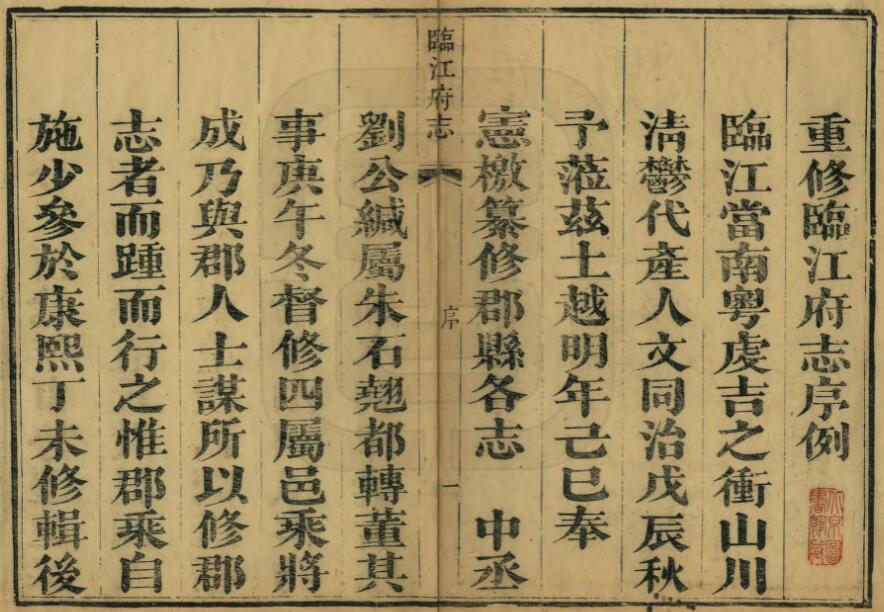 重修臨江府志序例
臨江當南粵虔吉之衝山川
清鬱代產人文同治戊辰秋
予蒞茲土越明年己巳奉
憲檄纂修郡縣各志 中丞
臨江府志 序 一
劉公緘屬朱石翹都轉董其
事庚午冬督修四屬邑乘將
成乃與郡人士謀所以修郡
志者而踵而行之惟郡乘自
施少參於康熙丁未修輯後